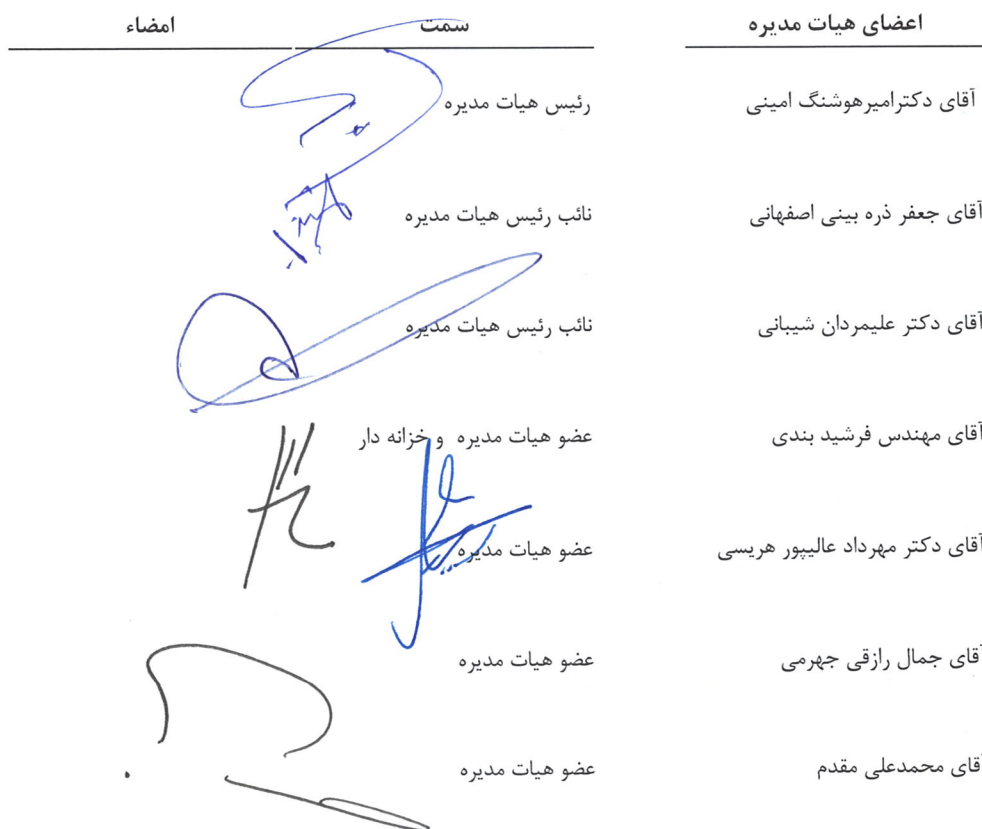 اعضای هیات مدیره سمت امضاء
آقای دکترامیرهوشنگ امینی رئیس هیات مدیره
آقای جعفر ذره بینی اصفهانی نائب رئیس هیات مدیره
آقای دکتر علیمردان شیبانی نائب رئیس هیات مدیره
آقای مهندس فرشید بندی عضو هیات مدیره و خزانه دار
آقای دکتر مهرداد عالیپور هریسی عضو هیات مدیره
آقای جمال رازقی جهرمی عضو هیات مدیره
آقای محمدعلی مقدم عضو هیات مدیره